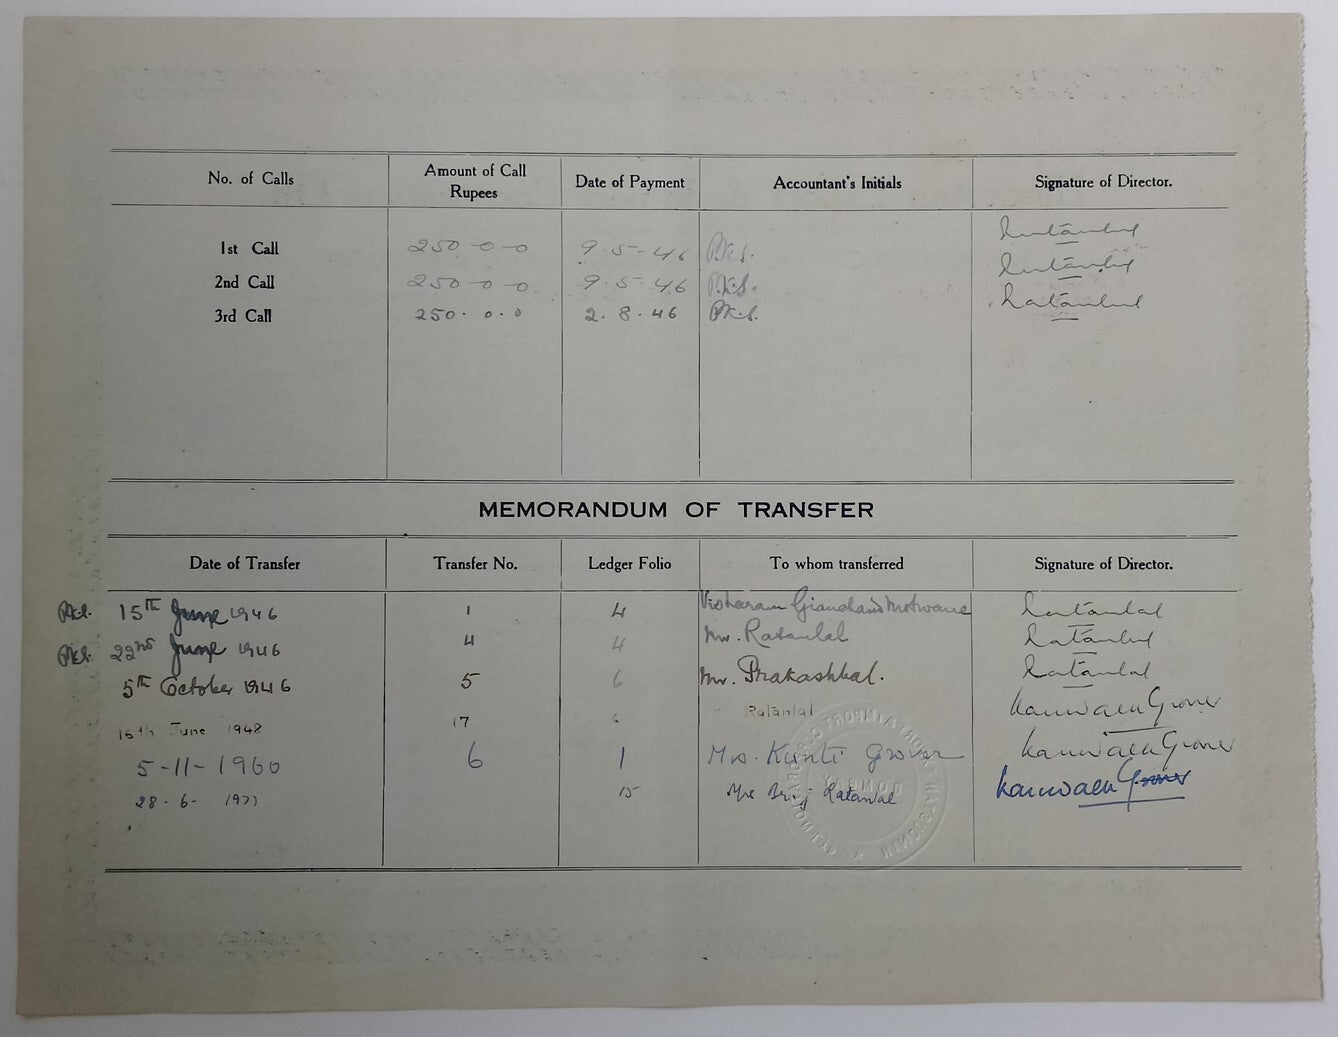 No. of Calls Amount of Call Rupees Date of Payment Accountant's Initials Signature of Director.
1st Call 250-0-0 9-5-46 P.K.S. Ratanlal
2nd Call 250-0-0. 9-5-46 P.K.S. Ratanlal
3rd Call 250. 0. 0 2. 8. 46 P.K.S. Ratanlal
MEMORANDUM OF TRANSFER
Date of Transfer Transfer No. Ledger Folio To whom transferred Signature of Director.
P.K.S. 15TH June 1946 1 4 Gianchand Motwane Ratanlal
P.K.S. 22nd June 1946 4 4 Mr. Ratanlal Ratanlal
5th October 1946 5 6 Mr. Ratanlal
16th June 1948 17 6 " Ratanlal Kanwalu Grover
5-11-1960 6 1 Mrs. Kunti Grover Kanwalu Grover
28-6-1977 15 Mrs Brij Ratanlal Kanwalu Grover